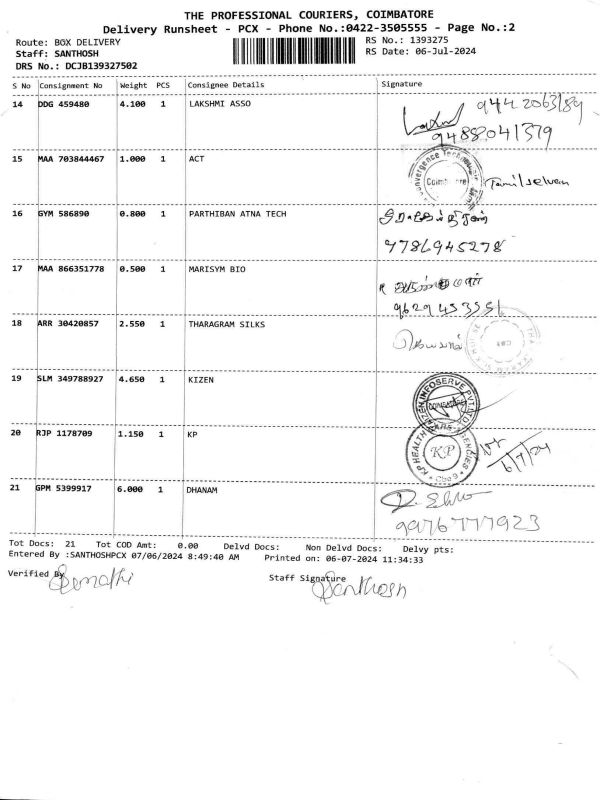 THE PROFESSIONAL COURIERS, COIMBATORE
Delivery Runsheet - PCX - Phone No.:0422-3505555 - Page No.:2
Route: BOX DELIVERY RS No.: 1393275
Staff: SANTHOSH RS Date: 06-Jul-2024
DRS No.: DCJB139327502
S No Consignment No Weight PCS Consignee Details Signature
14 DDG 459480 4.100 1 LAKSHMI ASSO 9442063189
9488041379
15 MAA 703844467 1.000 1 ACT Coimbatore Tamilselvan
16 GYM 586890 0.800 1 PARTHIBAN ATNA TECH
9786945278
17 MAA 866351778 0.500 1 MARISYM BIO
18 ARR 30420857 2.550 1 THARAGRAM SILKS
19 SLM 349788927 4.650 1 KIZEN COIMBATORE
20 RJP 1178709 1.150 1 KP KP 6/7/24
21 GPM 5399917 6.000 1 DHANAM
9976777923
Tot Docs: 21 Tot COD Amt: 0.00 Delvd Docs: Non Delvd Docs: Delvy pts:
Entered By :SANTHOSHPCX 07/06/2024 8:49:40 AM Printed on: 06-07-2024 11:34:33
Verified By Staff Signature
Santhosh